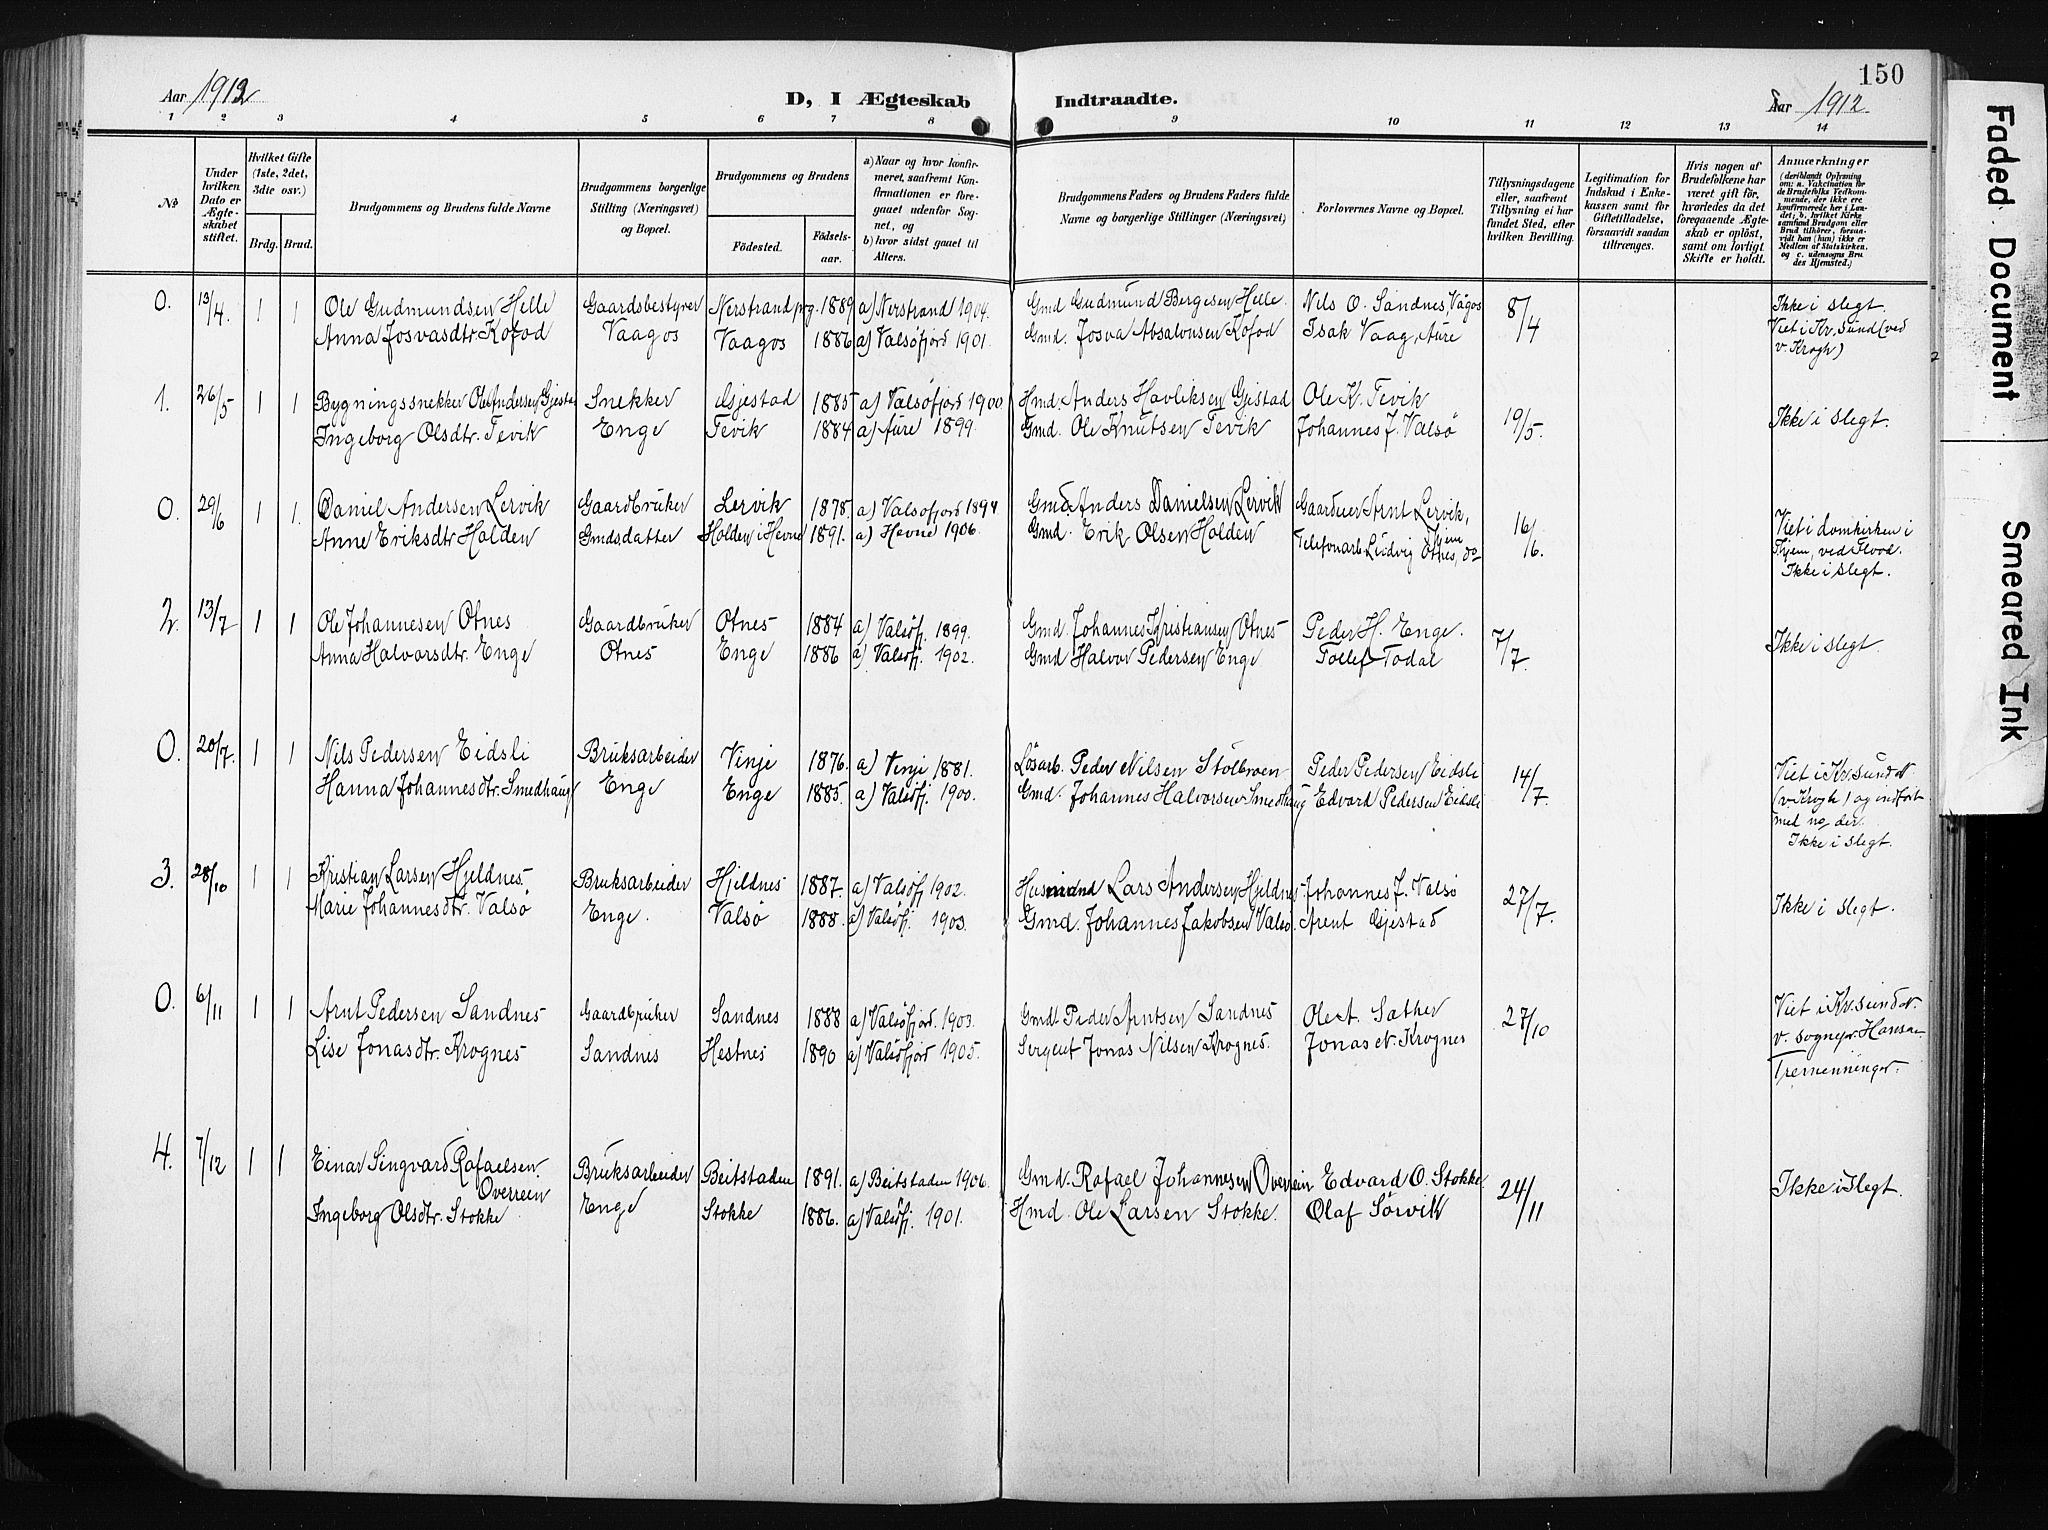 150
Aar 1912
D, I Ægteskab Indtraadte.
Aar 1912
1 2 3 4 5 6 7 8 9 10 11 12 13 14
No
Under hvilken Dato er Ægteskabet stiftet.
Hvilket Gifte (1ste, 2det, 3die osv.)
Brdg. Brud.
Brudgommens og Brudens fulde Navne
Brudgommens borgerlige Stilling (Næringsvei) og Bopæl.
Brudgommens og Brudens
Födested.
Födselsaar.
a) Naar og hvor konfirmeret, saafremt Konfirmationen er foregaaet udenfor Sognet, og
b) hvor sidst gaaet til Alters.
Brudgommens Faders og Brudens Faders fulde Navne og borgerlige Stillinger (Næringsvei)
Forlovernes Navne og Bopæl.
Tillysningsdagene eller, saafremt Tillysning ei har fundet Sted, efter hvilken Bevilling.
Legitimation for Indskud i Enkekassen samt for Giftetilladelse, forsaavidt saadan tiltrænges.
Hvis nogen af Brudefolkene har været gift för, hvorledes da det foregaaende Ægteskab er oplöst, samt om lovligt Skifte er holdt.
Anmærkninger (deriblandt Oplysning om: a. Vakcination for de Brudefolks Vedkommende, der ikke ere konfirmerede her i Landet; b. hvilket Kirkesamfund Brudgom eller Brud tilhörer, forsaavidt han (hun) ikke er Medlem af Statskirken, og c. udensogns Brudes Hjemsted.)
0. 13/4. 1 1 Ole Gudmundsen Helle Gaardsbestyrer Nerstrand prg. 1889 a) Nerstrand 1904. Gmd Gudmund Bergesen Helle. Nils O. Sandnes, Vågos 8/4 Ikke i slegt.
Anna Josvasdtr. Kofod Vaagos Vaagos 1886 a) Valsöfjord 1901. Gmd. Josva Absalonsen Kofod Isak Vaag, Aure Viet i Kr.sund (ved
v. Krogh)
1. 26/5 1 1 Bygningssnekker Ole Andersen Gjestad Snekker Gjestad 1885 a) Valsöfjord 1900. Hmd. Anders Havliksen Gjestad Ole K. Tevik 19/5. Ikke i slegt.
Ingeborg Olsdtr. Tevik Enge Tevik 1884 a) Aure 1899. Gmd. Ole Knutsen Tevik Johannes J. Valsö
0. 29/6 1 1. Daniel Andersen Lervik Gaardbruker Lervik 1878. a) Valsofjord 1894 Gmd Anders Danielsen Lervik Gaardeier Arnt Lervik, 16/6. Viet i domkirken i
Anne Eriksdtr Holden Gmdsdatter Holden i Hevne 1891. a) Hevne 1906. Gmd. Erik Olsen Holden Telefonarb. Ludvig Otnes, do Tjem, ved Flood.
Ikke i slegt.
2. 13/7 1 1 Ole Johannesen Otnes Gaardbruker Otnes 1884 a) Valsöfj. 1899. Gmd. Johannes Kristiansen Otnes Peder H. Enge. 7/7. Ikke i slegt.
Anna Halvorsdtr. Enge Otnes Enge 1886 a) Valsöfj. 1902. Gmd Halvor Pedersen Enge Tollef Todal
0. 20/7. 1 1 Nils Pedersen Eidsli Bruksarbeider Vinje 1876. a) Vinje 1881. Lösarb. Peder Nilsen Stolbroen Peder Pedersen Eidsli 14/7. Viet i Kr.sund N
Hanna Johannesdtr. Smedhaug Enge Enge 1885. a) Valsöfj. 1900. Gmd. Johannes Halvorsen Smedhaug Edvard Pedersen Eidsli (v. Krogh) og indfört
med no der.
Ikke i slegt.
3. 28/10 1 1 Kristian Larsen Hjeldnes Bruksarbeider Hjeldnes 1887. a) Valsöfj 1902. Husmand Lars Andersen Hjeldnes Johannes J. Valsö 27/7. Ikke i slegt.
Marie Johannesdtr. Valsö Enge. Valsö 1888. a) Valsöfj. 1903. Gmd. Johannes Jakobsen Valsö. Arent Gjestad
0. 6/11 1 1 Arnt Pedersen Sandnes Gaardbruker Sandnes 1888 a) Valsöfjord. 1903. Gmd. Peder Arntsen Sandnes Ole A. Sæther 27/10 Viet i Kr.sund N.
Lise Jonasdtr. Krognes Sandnes Hestnes 1890 a) Valsöfjord 1905. Sergent Jonas Nilsen Krognes. Jonas N. Krognes v. sognepr. Hansæ
Tremenninger.
4. 7/12 1 1 Einar Singvard Rafaelsen Overrein Bruksarbeider Beitstaden 1891. a) Beitstaden 1906. Gmd. Rafael Johannesen Overrein Edvard O. Stokke 24/11 Ikke i slegt.
Ingeborg Olsdtr. Stokke Enge Stokke 1886. a) Valsöfj. 1901. Hmd. Ole Larsen Stokke. Olaf Sörvik
Faded Document
Smeared Ink